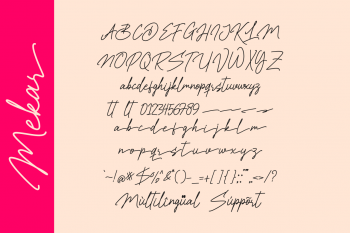 Mekar
ABCDEFGHIJKLM
NOPQRSTUVWXYZ
abcdefghijklmnopqrstuvwxyz
tt lt 0123456789
abcdefghijklm
nopqrstuvwxyz
`~!@#$%^&*()-_=+[]{}:;"",.<>/?
Multilingual Support